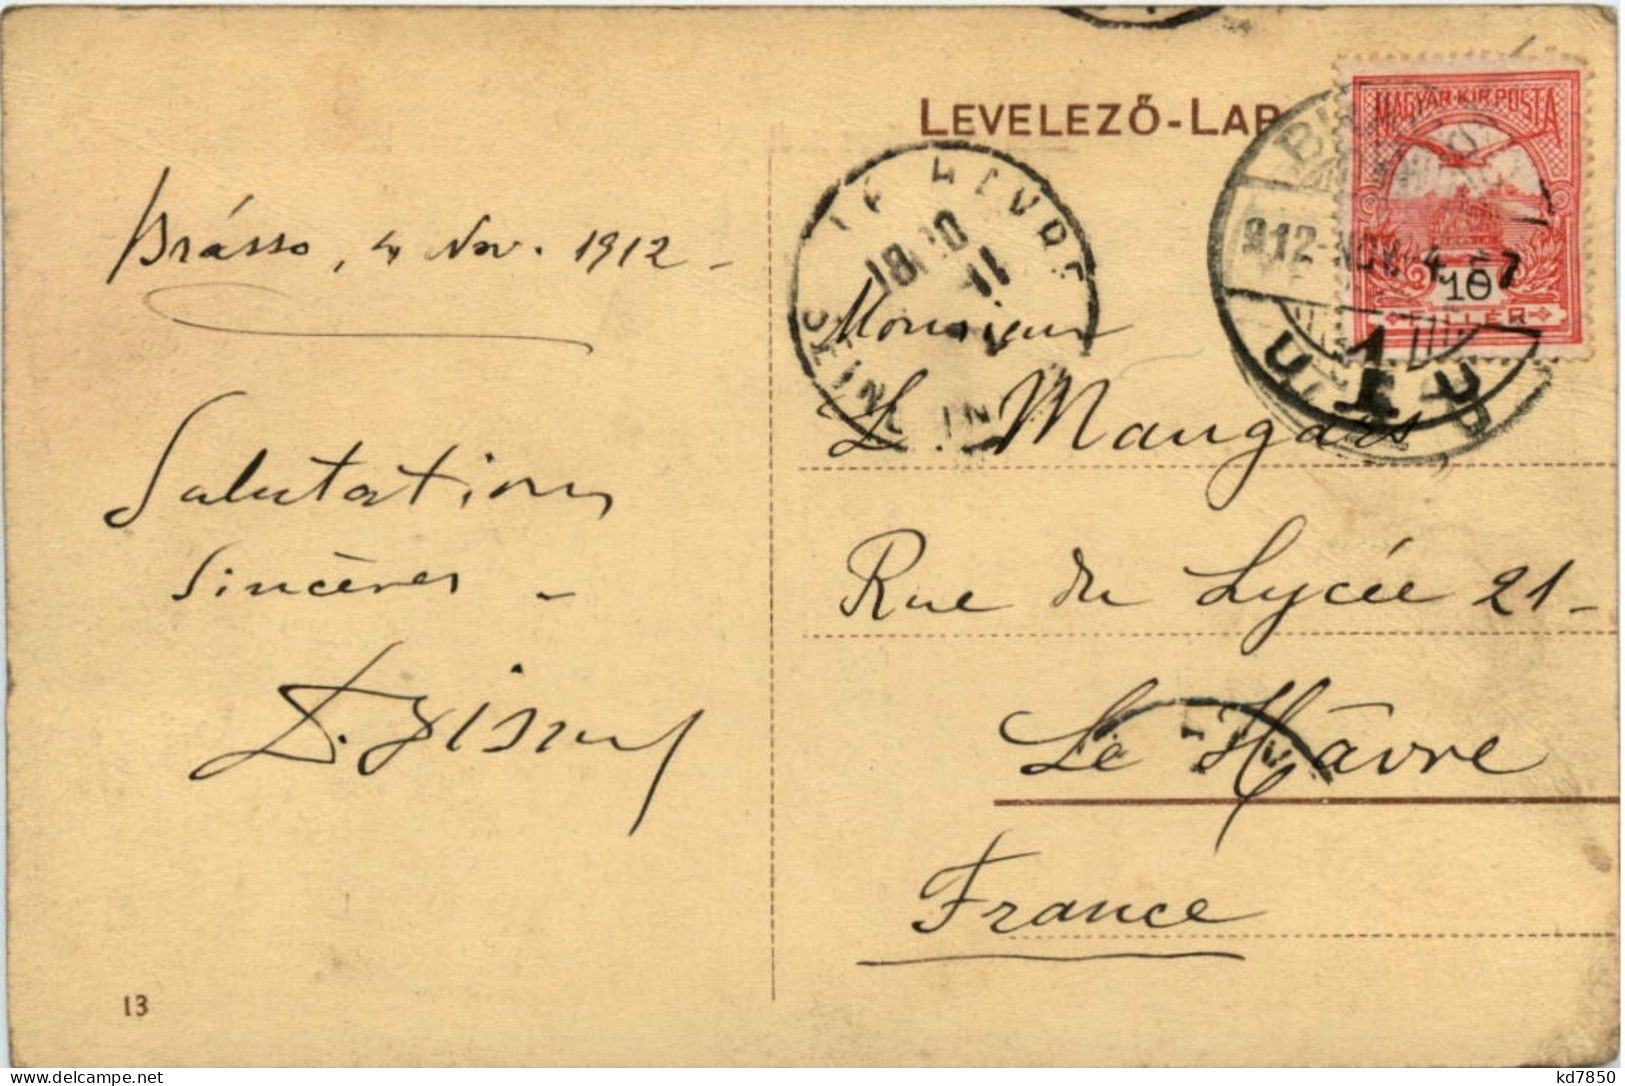 LEVELEZŐ-LAP
MAGYAR·KIR·POSTA
10
FILLÉR
912-NOV.-4.
LE HAVRE
18 10
11
SEINE INF
Brásso, 4 Nov. 1912 -
Salutations
Sincères -
Monsieur
L. Mangars,
Rue du Lycée 21 -
Le Hâvre
France
13
kd7850